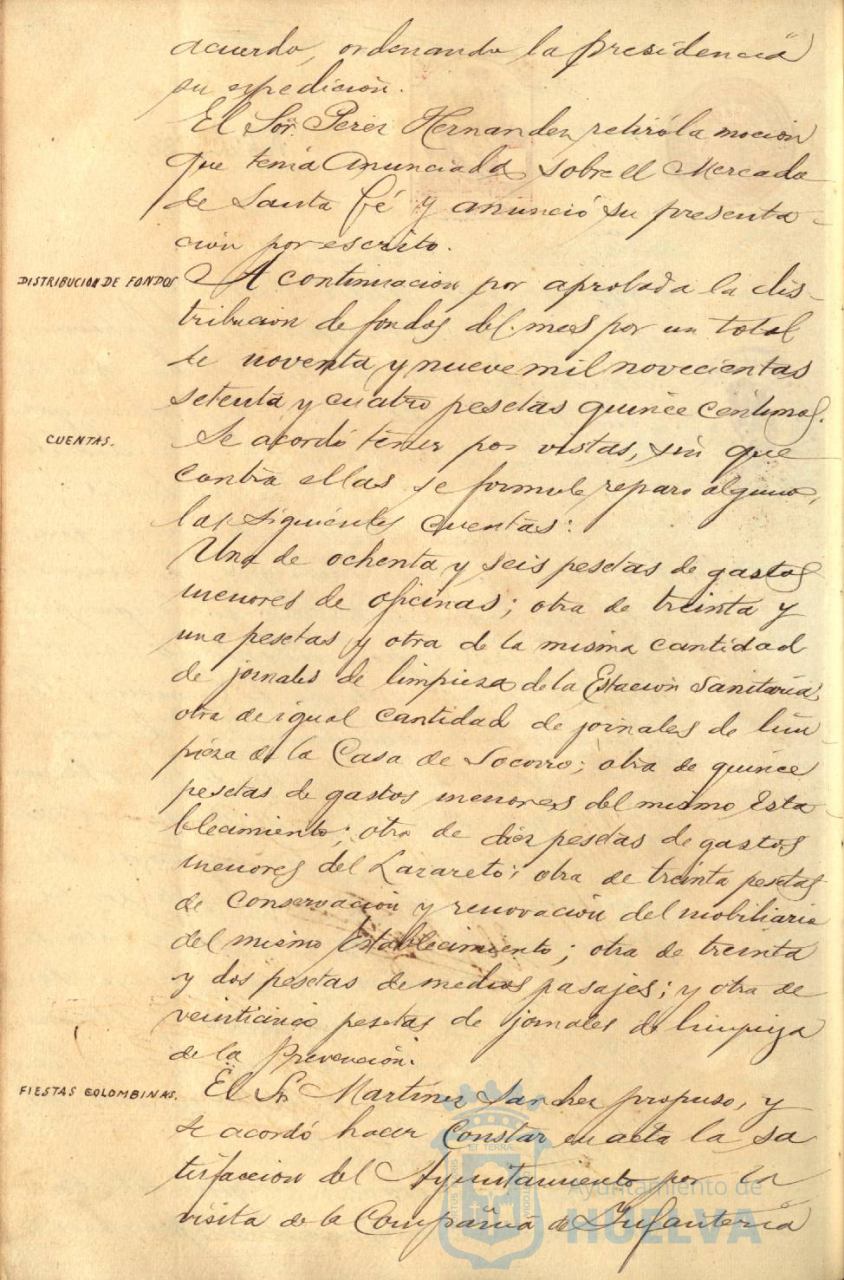 acuerdo, ordenando la presidencia
su expedición.
El Sor. Perez Hernandez, retiró la moción
que tenía anunciada sobre el Mercado
de Santa Fé y anunció su presenta-
ción por escrito.
DISTRIBUCION DE FONDOS
A continuacion por aprobada la dis-
tribucion de fondos del mes por un total
de noventa y nueve mil novecientas
setenta y cuatro pesetas quince centimos.
CUENTAS.
Se acordó tener por vistas, sin que
contra ellas se formule reparo alguno,
las siguientes cuentas:
Una de ochenta y seis pesetas de gastos
menores de oficinas; otra de treinta y
una pesetas y otra de la misma cantidad
de jornales de limpieza de la Estacion Sanitaria,
otra de igual cantidad de jornales de lim-
pieza de la Casa de Socorro; otra de quince
pesetas de gastos menores del mismo Esta-
blecimiento; otra de diez pesetas de gastos
menores del Lazareto; otra de treinta pesetas
de conservación y renovación del mobiliario
del mismo Establecimiento; otra de treinta
y dos pesetas de medios pasajes; y otra de
veinticinco pesetas de jornales de limpieza
de la Prevención.
FIESTAS COLOMBINAS.
El Sr. Martinez Sanchez propuso, y
se acordó hacer constar en acta la sa
tisfaccion del Ayuntamiento por la
visita de la Compañía de Infantería
Ayuntamiento de
HUELVA